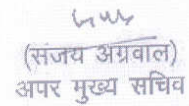 (संजय अग्रवाल)
अपर मुख्य सचिव